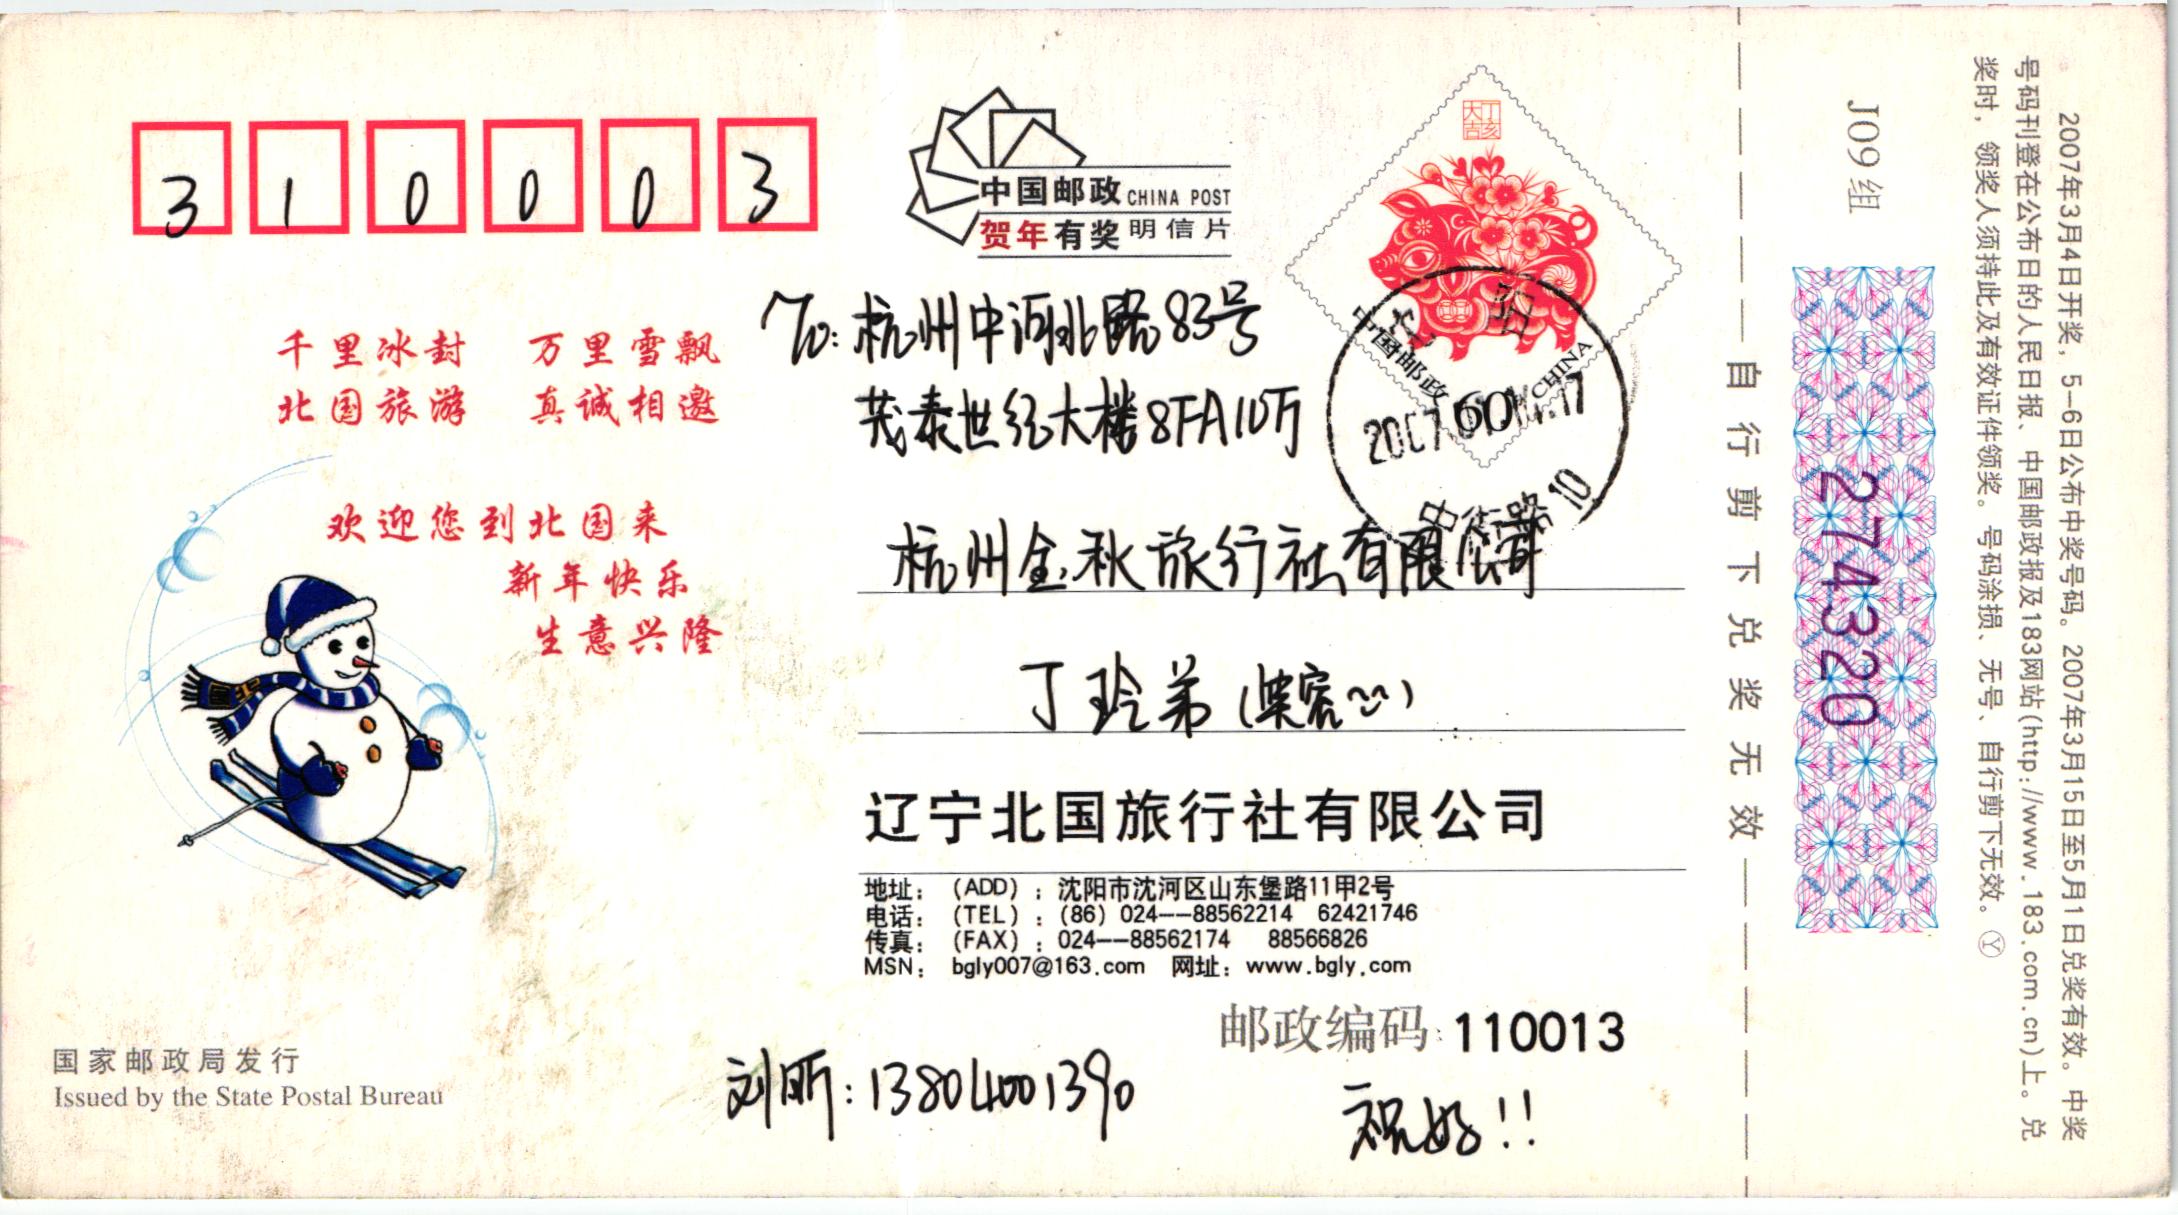 310003
中国邮政 CHINA POST
贺年有奖明信片
丁亥大吉
千里冰封 万里雪飘
北国旅游 真诚相邀
欢迎您到北国来
新年快乐
生意兴隆
To: 杭州中河北路83号
茂泰世纪大楼8FA10万
中国邮政 CHINA
中街路 10
杭州金秋旅行社有限公司
丁玲弟
辽宁北国旅行社有限公司
地址: (ADD): 沈阳市沈河区山东堡路11甲2号
电话: (TEL): (86) 024--88562214 62421746
传真: (FAX): 024--88562174 88566826
MSN: bgly007@163.com 网址: www.bgly.com
邮政编码: 110013
刘昕: 13804001390
祝好!!
国家邮政局发行
Issued by the State Postal Bureau
自行剪下兑奖无效
J09组
274320
2007年3月4日开奖，5-6日公布中奖号码。2007年3月15日至5月1日兑奖有效。中奖
号码刊登在公布日的人民日报、中国邮政报及183网站(http://www.183.com.cn)上。兑
奖时，领奖人须持此及有效证件领奖。号码涂损、无号、自行剪下无效。Ⓨ